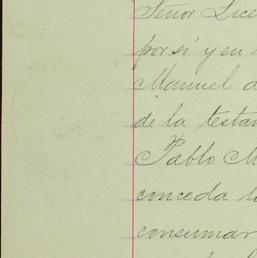 Señor Lice
por sí y en
Manuel a
de la testa
Pablo M
conceda l
consumar